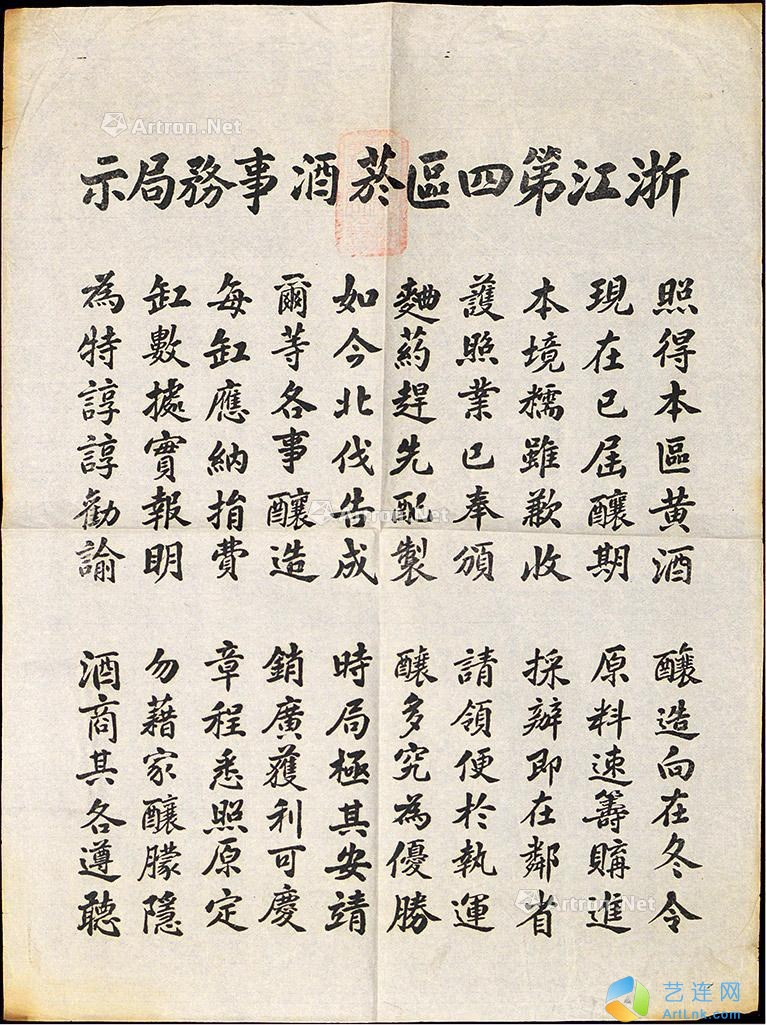 浙江第四區菸酒事務局示
照得本區黃酒 釀造向在冬令
現在已屆釀期 原料速籌購進
本境糯雖歉收 採辦即在鄰省
護照業已奉頒 請領便於執運
麯葯趕先配製 釀多究為優勝
如今北伐告成 時局極其安靖
爾等各事釀造 銷廣獲利可慶
每缸應納捐費 章程悉照原定
缸數據實報明 勿藉家釀朦隱
為特諄諄勸諭 酒商其各遵聽
Artron.Net
Artron.Net
Artron.Net
艺连网
ArtLnk.com